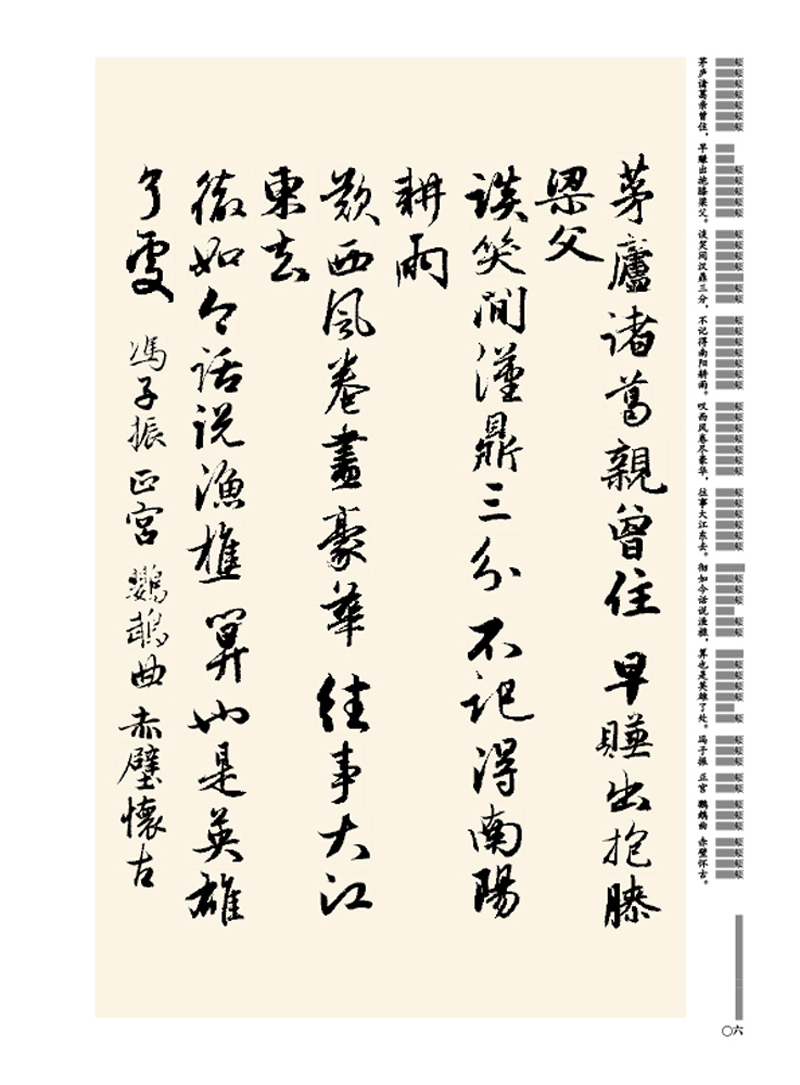 茅廬诸葛親曾住 早賺出抱膝
梁父
談笑间漢鼎三分 不记得南陽
耕雨
歎西风卷盡豪華 往事大江
東去
徹如今话说漁樵 算也是英雄
了处 冯子振 正宫 鹦鹉曲 赤壁懷古
茅庐诸葛亲曾住，早赚出抱膝梁父。谈笑间汉鼎三分，不记得南阳耕雨。叹西风卷尽豪华，往事大江东去。彻如今话说渔樵，算也是英雄了处。冯子振 正宫 鹦鹉曲 赤壁怀古。
〇六